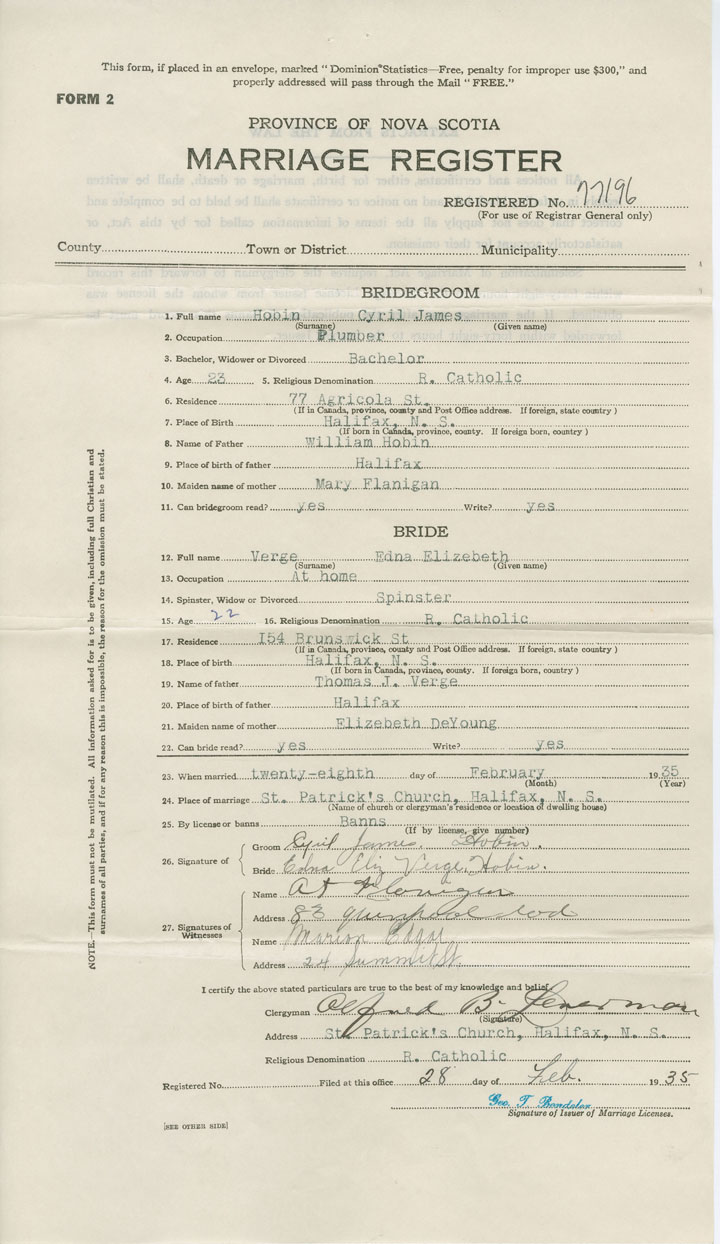 This form, if placed in an envelope, marked " Dominion Statistics—Free, penalty for improper use $300," and
properly addressed will pass through the Mail " FREE."
FORM 2
PROVINCE OF NOVA SCOTIA
MARRIAGE REGISTER
REGISTERED No. 77196
(For use of Registrar General only)
County Town or District Municipality
BRIDEGROOM
1. Full name Hobin Cyril James
(Surname) (Given name)
2. Occupation Plumber
3. Bachelor, Widower or Divorced Bachelor
4. Age 23 5. Religious Denomination R. Catholic
6. Residence 77 Agricola St.
(If in Canada, province, county and Post Office address. If foreign, state country )
7. Place of Birth Halifax, N. S.
(If born in Canada, province, county. If foreign born, country )
8. Name of Father William Hobin
9. Place of birth of father Halifax
10. Maiden name of mother Mary Flanigan
11. Can bridegroom read? yes Write? yes
BRIDE
12. Full name Verge Edna Elizebeth
(Surname) (Given name)
13. Occupation At home
14. Spinster, Widow or Divorced Spinster
15. Age 22 16. Religious Denomination R. Catholic
17. Residence I54 Brunswick St
(If in Canada, province, county and Post Office address. If foreign, state country )
18. Place of birth Halifax, N. S.
(If born in Canada, province, county. If foreign born, country )
19. Name of father Thomas J. Verge
20. Place of birth of father Halifax
21. Maiden name of mother Elizebeth DeYoung
22. Can bride read? yes Write? yes
23. When married twenty-eighth day of February 1935
(Month) (Year)
24. Place of marriage St. Patrick's Church, Halifax, N. S.
(Name of church or clergyman's residence or location of dwelling house)
25. By license or banns Banns
(If by license, give number)
26. Signature of Groom Cyril James Hobin.
Bride Edna Eliz Verge Hobin.
27. Signatures of Witnesses Name
Address 83
Name Marion
Address 24 Summit St.
I certify the above stated particulars are true to the best of my knowledge and belief.
Clergyman Alfred B.
(Signature)
Address St. Patrick's Church, Halifax, N. S.
Religious Denomination R. Catholic
Registered No. Filed at this office 28 day of Feb. 1935
Geo. T.
Signature of Issuer of Marriage Licenses.
[SEE OTHER SIDE]
NOTE.—This form must not be mutilated. All information asked for is to be given, including full Christian and
surnames of all parties, and if for any reason this is impossible, the reason for the omission must be stated.